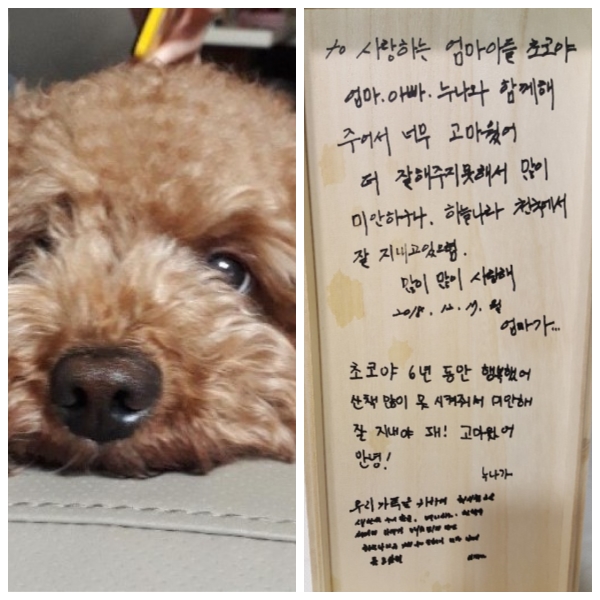 to 사랑하는 엄마아들 초코야
엄마.아빠.누나와 함께해
주어서 너무 고마웠어
더 잘해주지못해서 많이
미안하구나. 하늘나라 천국에서
잘 지내고있으렴.
많이 많이 사랑해
2018. 12. 월
엄마가...
초코야 6년 동안 행복했어
산책 많이 못 시켜줘서 미안해
잘 지내야 돼! 고마웠어
안녕!
누나가
우리가족을